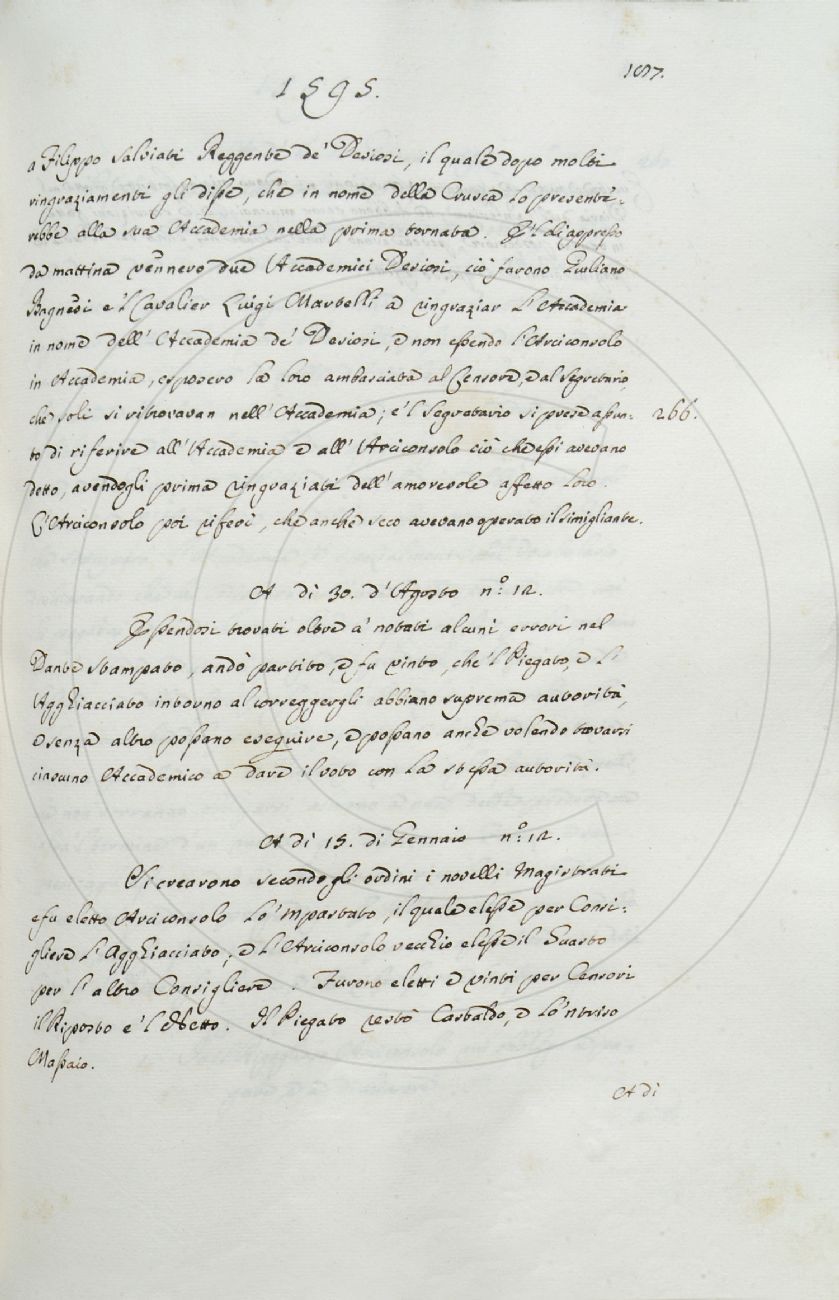 187.
1595.
a Filippo Salviati Reggente de' Desiosi, il quale dopo molti
ringraziamenti gli disse, che in nome della Crusca lo presente-
rebbe alla sua Accademia nella prima tornata. E 'l dì appresso
da mattina vennero due Accademici Desiosi, ciò furono Giuliano
Bagnesi e 'l Cavalier Luigi Martelli a ringraziar l'Accademia
in nome dell'Accademia de' Desiosi, e non essendo l'Arciconsolo
in Accademia, esposero la loro ambasciata al Censore, e al Segretario,
che soli si ritrovavan nell'Accademia; e 'l Segretario si prese assun- 266.
to di riferire all'Accademia e all'Arciconsolo ciò che essi avevano
detto, avendogli prima ringraziati dell'amorevole affetto loro.
L'Arciconsolo poi riferì, che anche seco avevano operato il simigliante.
A dì 30. d'Agosto n.º 12.
Essendosi trovati oltre a' notati alcuni errori nel
Dante stampato, andò partito, e fu vinto, che 'l Piegato, e l'
Agghiacciato intorno al correggergli abbiano suprema autorità,
e senza altro possano eseguire, e possano anche volendo trovarsi
ciascuno Accademico a dare il voto con la stessa autorità.
A dì 15. di Gennaio n.º 12.
Si crearono secondo gli ordini i novelli Magistrati
e fu eletto Arciconsolo lo 'mpastato, il quale elesse per Consi-
gliere l'Agghiacciato, e l'Arciconsolo vecchio elesse il Guasto
per l'altro Consigliere. Furono eletti e vinti per Censori
il Riposto e 'l Netto. Il Piegato restò Castaldo, e lo 'ntriso
Massaio.
A dì